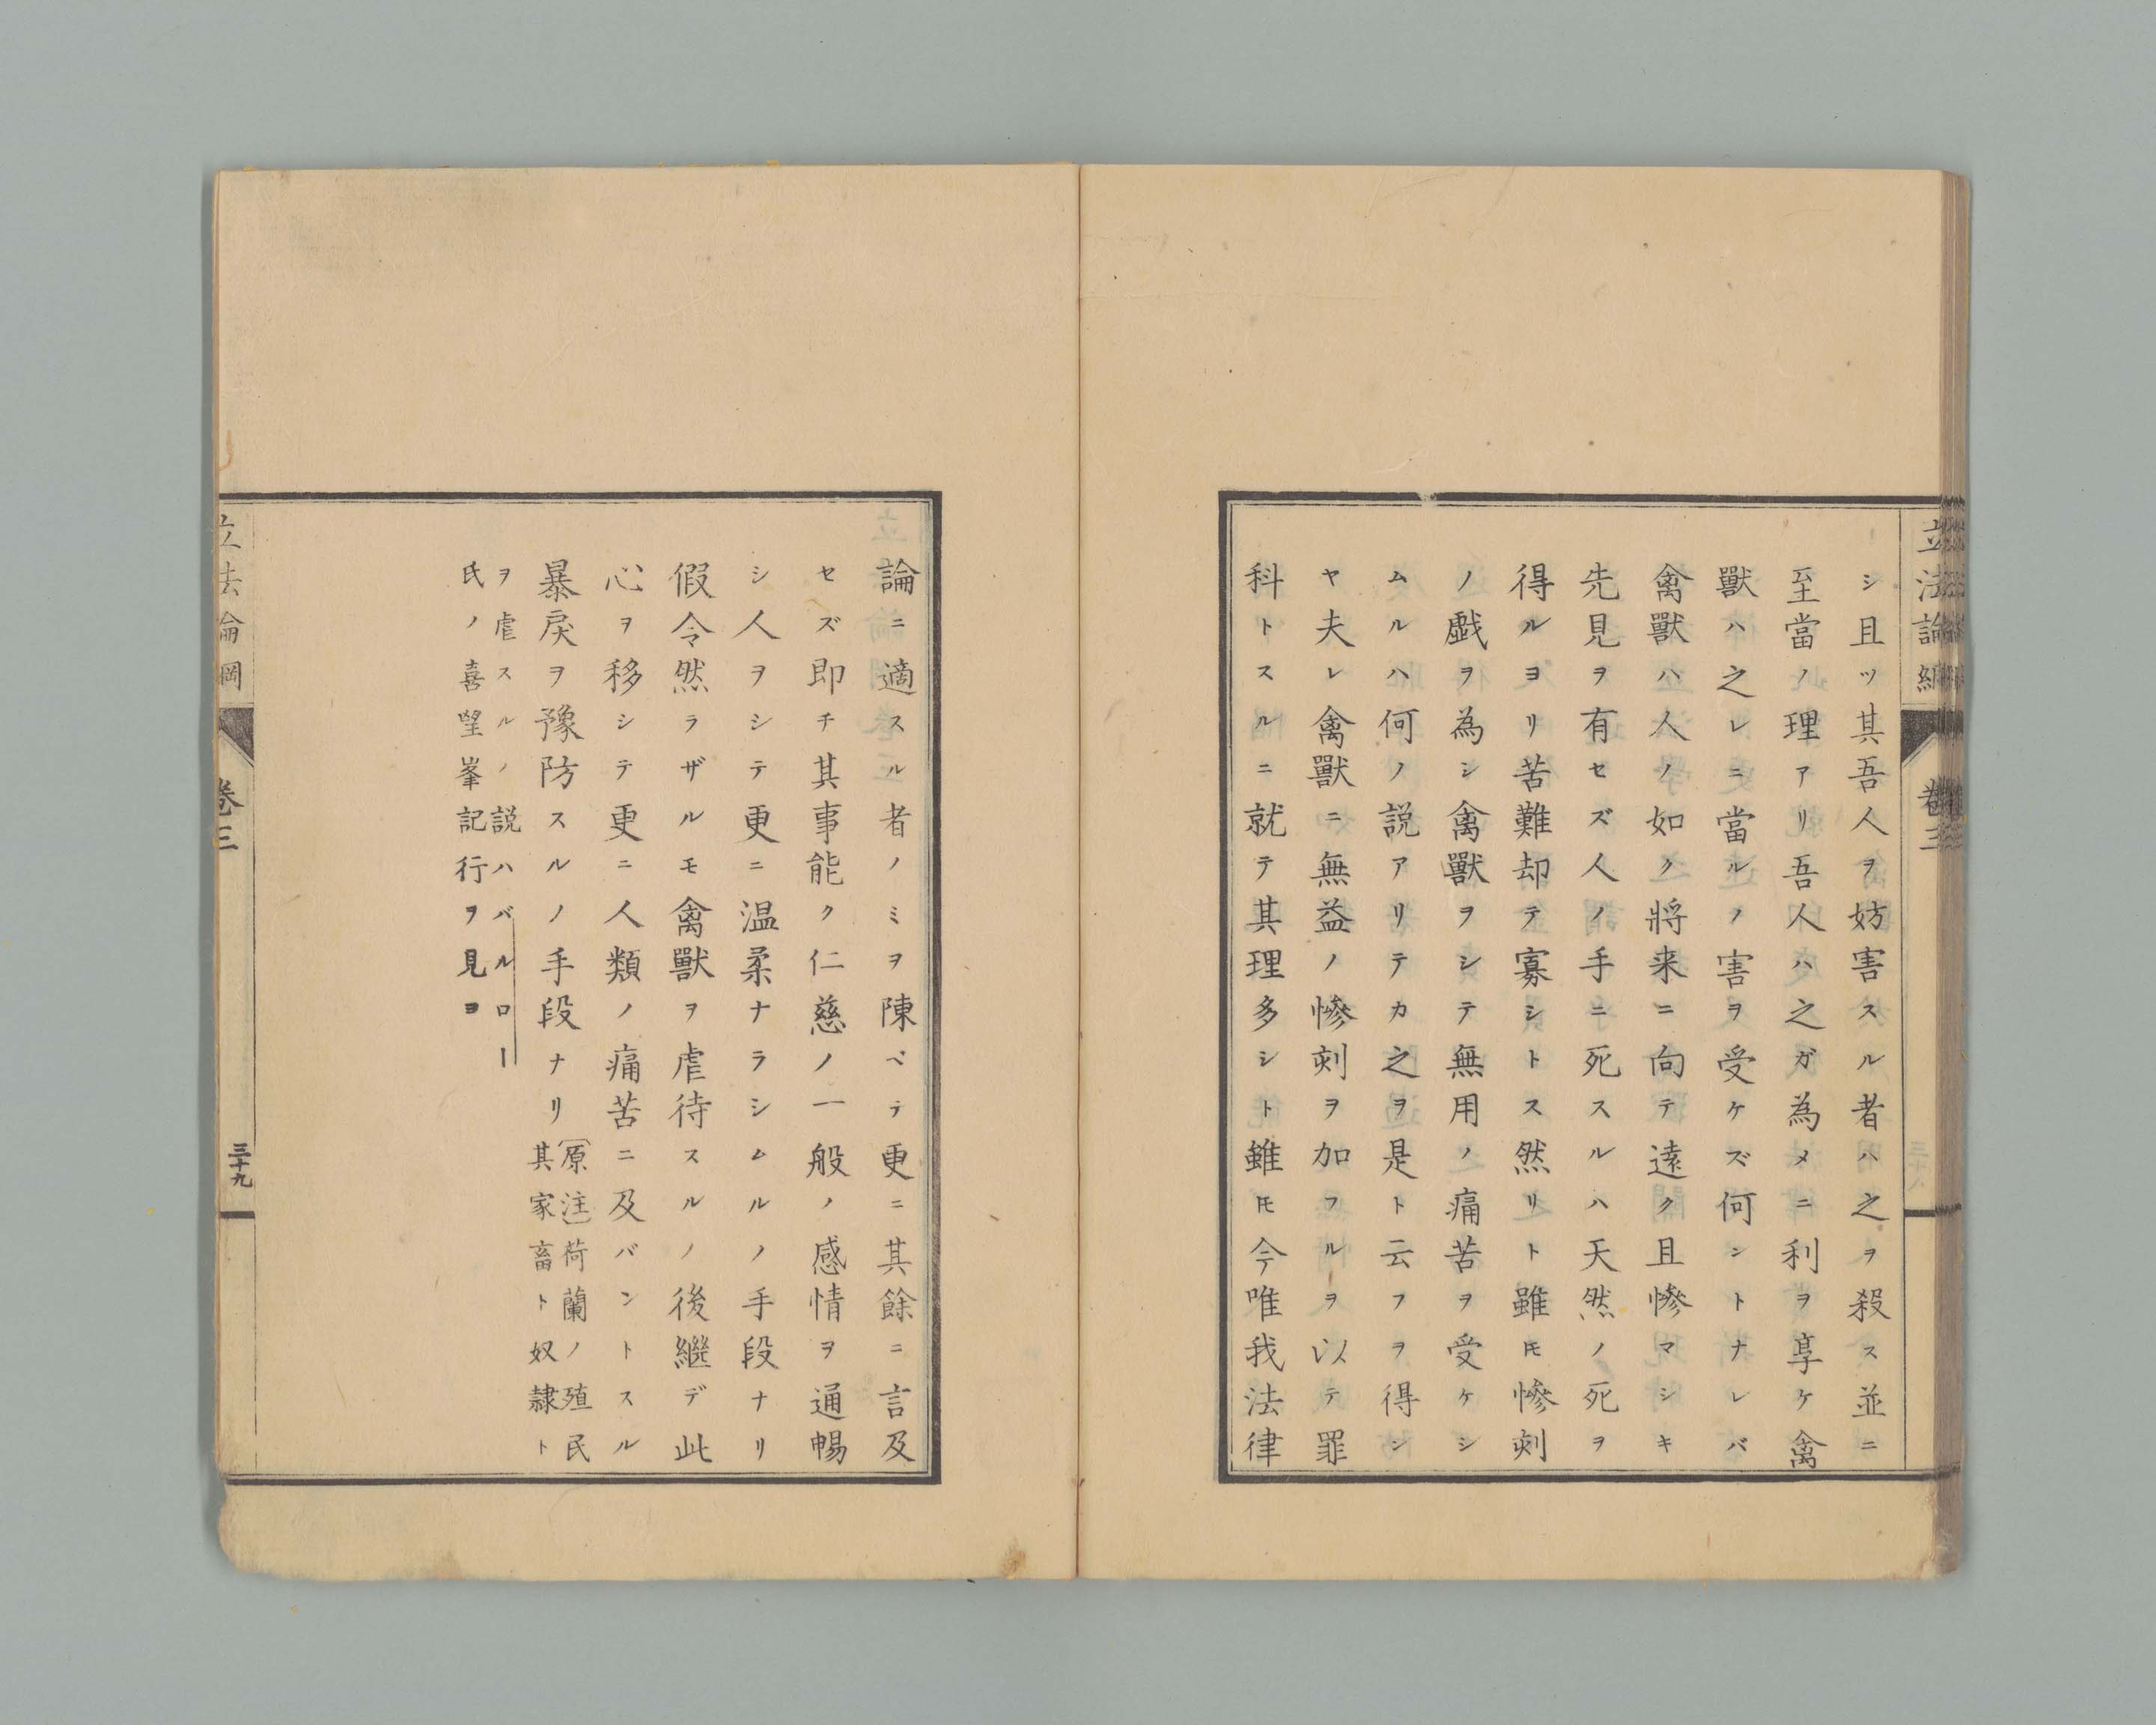 立法論綱 卷三
シ且ツ其吾人ヲ妨害スル者ハ之ヲ殺ス並ニ
至當ノ理アリ吾人ハ之ガ為メニ利ヲ享ケ禽
獸ハ之レニ當ルノ害ヲ受ケズ何ントナレバ
禽獸ハ人ノ如ク將来ニ向テ遠ク且慘マシキ
先見ヲ有セズ人ノ手ニ死スルハ天然ノ死ヲ
得ルヨリ苦難却テ寡シトス然リト雖𪜈慘刻
ノ戯ヲ為シ禽獸ヲシテ無用ノ痛苦ヲ受ケシ
ムルハ何ノ説アリテカ之ヲ是ト云フヲ得ン
ヤ夫レ禽獸ニ無益ノ慘刻ヲ加フルヲ以テ罪
科トスルニ就テ其理多シト雖𪜈今唯我法律
論ニ適スル者ノミヲ陳ベテ更ニ其餘ニ言及
セズ即チ其事能ク仁慈ノ一般ノ感情ヲ通暢
シ人ヲシテ更ニ温柔ナラシムルノ手段ナリ
假令然ラザルモ禽獸ヲ虐待スルノ後繼デ此
心ヲ移シテ更ニ人類ノ痛苦ニ及バントスル
暴戻ヲ豫防スルノ手段ナリ
（原注）荷蘭ノ殖民
其家畜ト奴隷ト
ヲ虐スルノ説ハバルロー
氏ノ喜望峯記行ヲ見ヨ
立法論綱 卷三 三十九